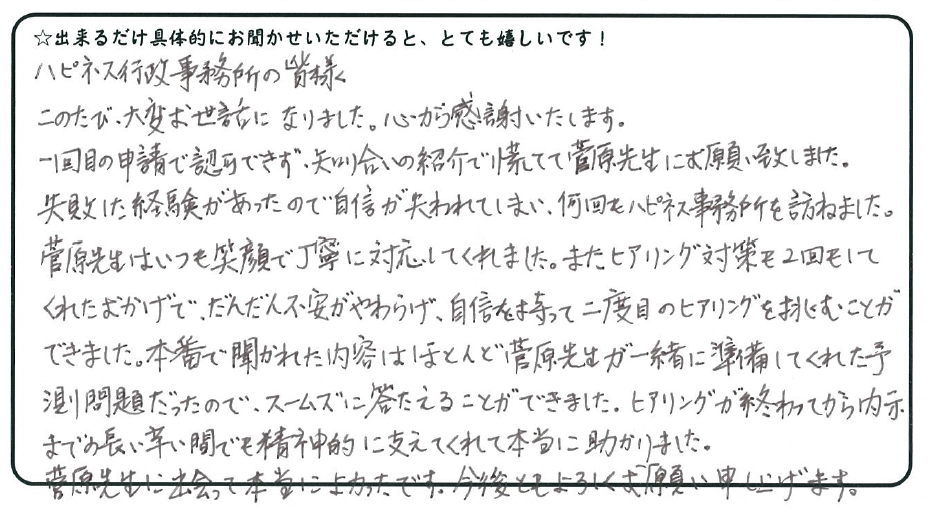 ☆出来るだけ具体的にお聞かせいただけると、とても嬉しいです!
ハピネス行政事務所の皆様へ
このたび、大変お世話になりました。心から感謝いたします。
一回目の申請で認可できず、知り合いの紹介で慌てて菅原先生にお願い致しました。
失敗した経験があったので自信が失われてしまい、何回もハピネス事務所を訪ねました。
菅原先生はいつも笑顔で丁寧に対応してくれました。またヒアリング対策も2回もして
くれたおかげで、だんだん不安がやわらげ、自信を持って二度目のヒアリングを挑むことが
できました。本番で聞かれた内容はほとんど菅原先生が一緒に準備してくれた予
測問題だったので、スームズに答たえることができました。ヒアリングが終わってから内示
までの長い辛い間でも精神的に支えてくれて本当に助かりました。
菅原先生に出会って本当によかったです。今後ともよろしくお願い申し上げます。